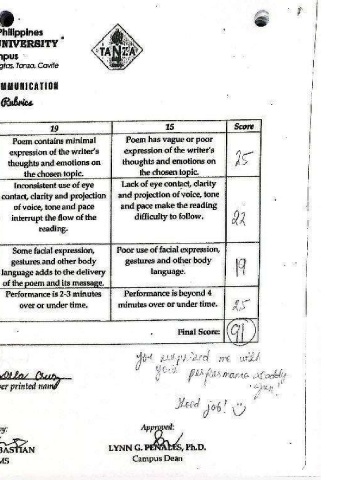 Philippines
UNIVERSITY
mpus
gtas, Tanza, Cavite
TANZA
MMUNICATION
Rubrics
19 15 Score
Poem contains minimal expression of the writer's thoughts and emotions on the chosen topic.
Poem has vague or poor expression of the writer's thoughts and emotions on the chosen topic.
25
Inconsistent use of eye contact, clarity and projection of voice, tone and pace interrupt the flow of the reading.
Lack of eye contact, clarity and projection of voice, tone and pace make the reading difficulty to follow.
22
Some facial expression, gestures and other body language adds to the delivery of the poem and its message.
Poor use of facial expression, gestures and other body language.
19
Performance is 2-3 minutes over or under time.
Performance is beyond 4 minutes over or under time.
25
Final Score: 91
you surprised me with
your performance
Good job!
Cruz
er printed name
by:
Approved:
BASTIAN
LYNN G. PENALES, Ph.D.
MS
Campus Dean